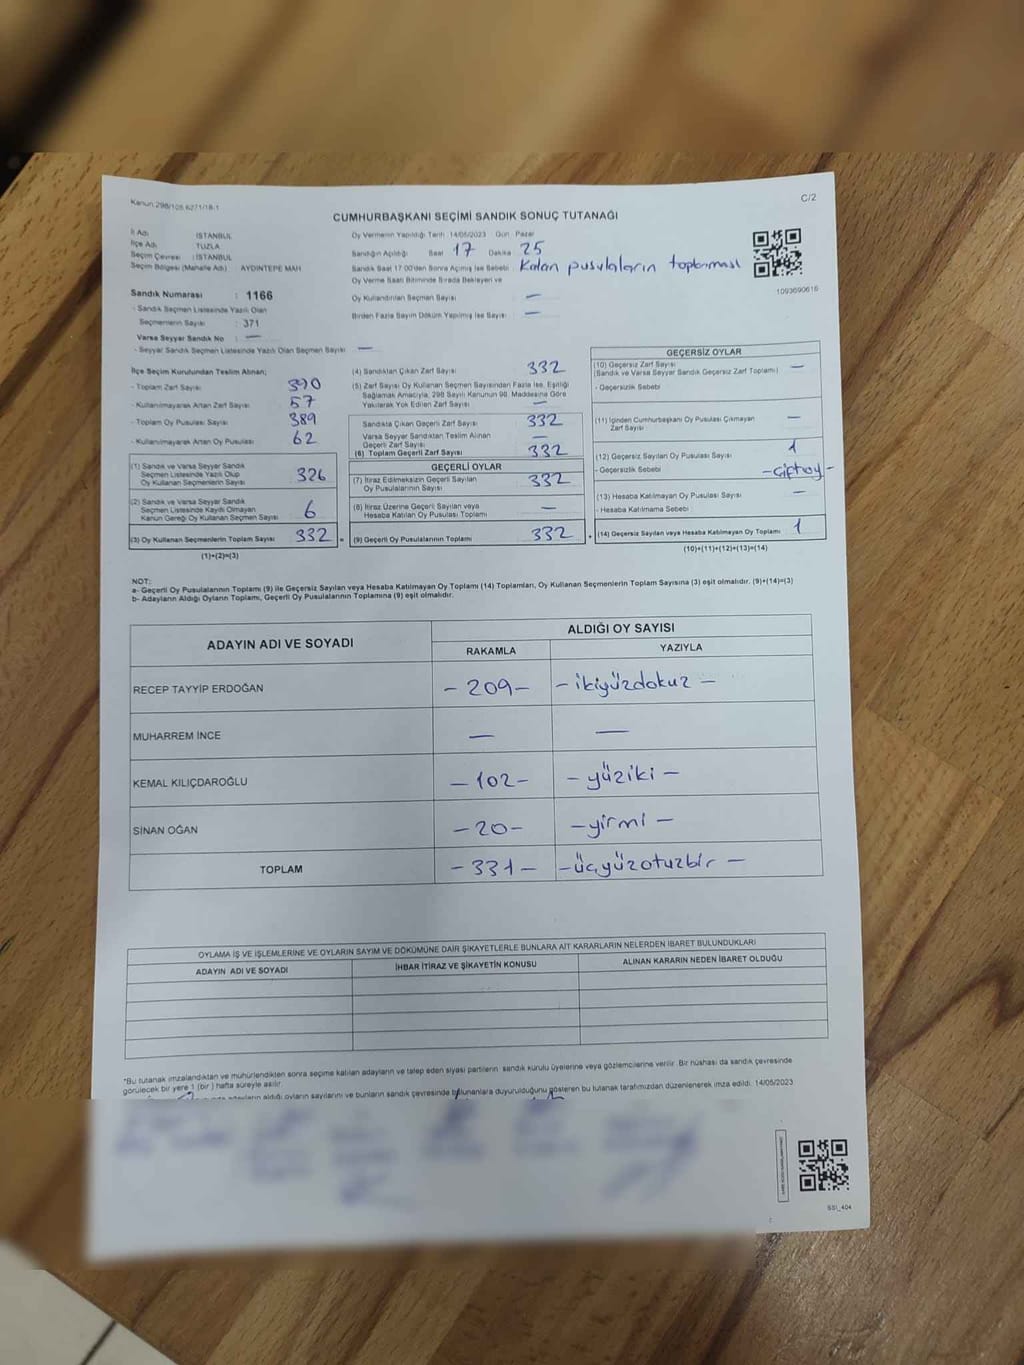 Kanun 298/105 6271/18-1
C/2
CUMHURBAŞKANI SEÇİMİ SANDIK SONUÇ TUTANAĞI
İl Adı : İSTANBUL
İlçe Adı : TUZLA
Seçim Çevresi : İSTANBUL
Seçim Bölgesi (Mahalle Adı) AYDINTEPE MAH
Oy Vermenin Yapıldığı Tarih 14/05/2023 Gün Pazar
Sandığın Açıldığı Saat 17 Dakika 25
Sandık Saat 17:00'den Sonra Açılmış İse Sebebi : Kalan pusulaların toplanması
Oy Verme Saati Bitiminde Sırada Bekleyen ve
Oy Kullandırılan Seçmen Sayısı —
Birden Fazla Sayım Döküm Yapılmış İse Sayısı : —
1093690616
Sandık Numarası : 1166
- Sandık Seçmen Listesinde Yazılı Olan
Seçmenlerin Sayısı : 371
Varsa Seyyar Sandık No : —
- Seyyar Sandık Seçmen Listesinde Yazılı Olan Seçmen Sayısı —
İlçe Seçim Kurulundan Teslim Alınan;
- Toplam Zarf Sayısı 390
- Kullanılmayarak Artan Zarf Sayısı 57
- Toplam Oy Pusulası Sayısı 389
- Kullanılmayarak Artan Oy Pusulası 62
(1) Sandık ve Varsa Seyyar Sandık
Seçmen Listesinde Yazılı Olup
Oy Kullanan Seçmenlerin Sayısı 326
(2) Sandık ve Varsa Seyyar Sandık
Seçmen Listesinde Kayıtlı Olmayan
Kanun Gereği Oy Kullanan Seçmen Sayısı 6
(3) Oy Kullanan Seçmenlerin Toplam Sayısı 332 =
(1)+(2)=(3)
(4) Sandıktan Çıkan Zarf Sayısı 332
(5) Zarf Sayısı Oy Kullanan Seçmen Sayısından Fazla İse, Eşitliği
Sağlamak Amacıyla, 298 Sayılı Kanunun 98. Maddesine Göre
Yakılarak Yok Edilen Zarf Sayısı —
Sandıkta Çıkan Geçerli Zarf Sayısı 332
Varsa Seyyar Sandıktan Teslim Alınan
Geçerli Zarf Sayısı —
(6) Toplam Geçerli Zarf Sayısı 332
GEÇERLİ OYLAR
(7) İtiraz Edilmeksizin Geçerli Sayılan
Oy Pusulalarının Sayısı 332
(8) İtiraz Üzerine Geçerli Sayılan veya
Hesaba Katılan Oy Pusulası Toplamı —
(9) Geçerli Oy Pusulalarının Toplamı 332 +
GEÇERSİZ OYLAR
(10) Geçersiz Zarf Sayısı
(Sandık ve Varsa Seyyar Sandık Geçersiz Zarf Toplamı) —
- Geçersizlik Sebebi
(11) İçinden Cumhurbaşkanı Oy Pusulası Çıkmayan
Zarf Sayısı —
(12) Geçersiz Sayılan Oy Pusulası Sayısı 1
- Geçersizlik Sebebi -çift oy-
(13) Hesaba Katılmayan Oy Pusulası Sayısı —
- Hesaba Katılmama Sebebi
(14) Geçersiz Sayılan veya Hesaba Katılmayan Oy Toplamı 1
(10)+(11)+(12)+(13)=(14)
NOT:
a- Geçerli Oy Pusulalarının Toplamı (9) ile Geçersiz Sayılan veya Hesaba Katılmayan Oy Toplamı (14) Toplamları, Oy Kullanan Seçmenlerin Toplam Sayısına (3) eşit olmalıdır. (9)+(14)=(3)
b- Adayların Aldığı Oyların Toplamı, Geçerli Oy Pusulalarının Toplamına (9) eşit olmalıdır.
ADAYIN ADI VE SOYADI
ALDIĞI OY SAYISI
RAKAMLA YAZIYLA
RECEP TAYYİP ERDOĞAN -209- - ikiyüzdokuz -
MUHARREM İNCE — —
KEMAL KILIÇDAROĞLU -102- - yüziki -
SİNAN OĞAN -20- -yirmi-
TOPLAM -331- -üçyüzotuzbir -
OYLAMA İŞ VE İŞLEMLERİNE VE OYLARIN SAYIM VE DÖKÜMÜNE DAİR ŞİKAYETLERLE BUNLARA AİT KARARLARIN NELERDEN İBARET BULUNDUKLARI
ADAYIN ADI VE SOYADI İHBAR İTİRAZ VE ŞİKAYETİN KONUSU ALINAN KARARIN NEDEN İBARET OLDUĞU
*Bu tutanak imzalandıktan ve mühürlendikten sonra seçime katılan adayların ve talep eden siyasi partilerin sandık kurulu üyelerine veya gözlemcilerine verilir. Bir nüshası da sandık çevresinde
görülecek bir yere 1 (bir) hafta süreyle asılır.
adayların aldığı oyların sayılarını ve bunların sandık çevresinde bulunanlara duyurulduğunu gösteren bu tutanak tarafımızdan düzenlenerek imza edildi. 14/05/2023
SSI_404